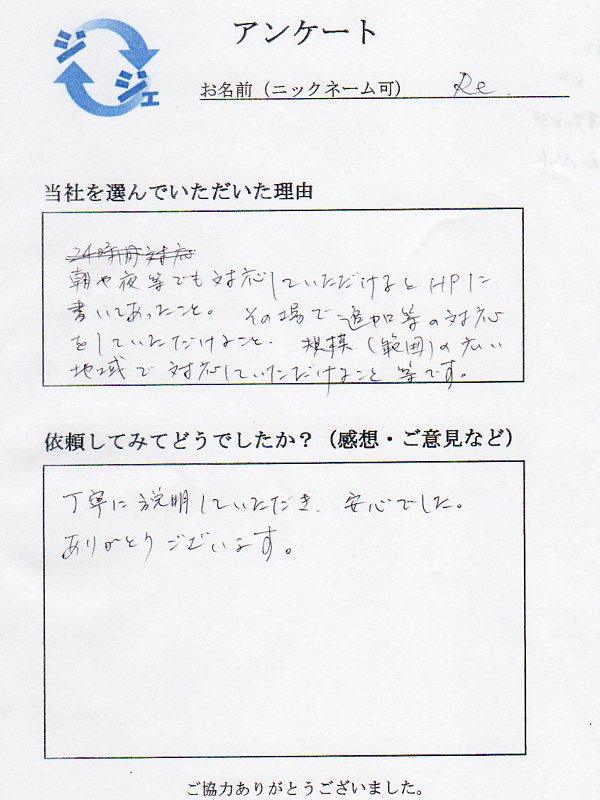 ジジェ
アンケート
お名前（ニックネーム可） Re.
当社を選んでいただいた理由
24時間対応
朝や夜等でも対応していただけるとHPに
書いてあったこと。その場で追加等の対応
をしていただけること、規模（範囲）の広い
地域で対応していただけること等です。
依頼してみてどうでしたか？（感想・ご意見など）
丁寧に説明していただき、安心でした。
ありがとうございます。
ご協力ありがとうございました。